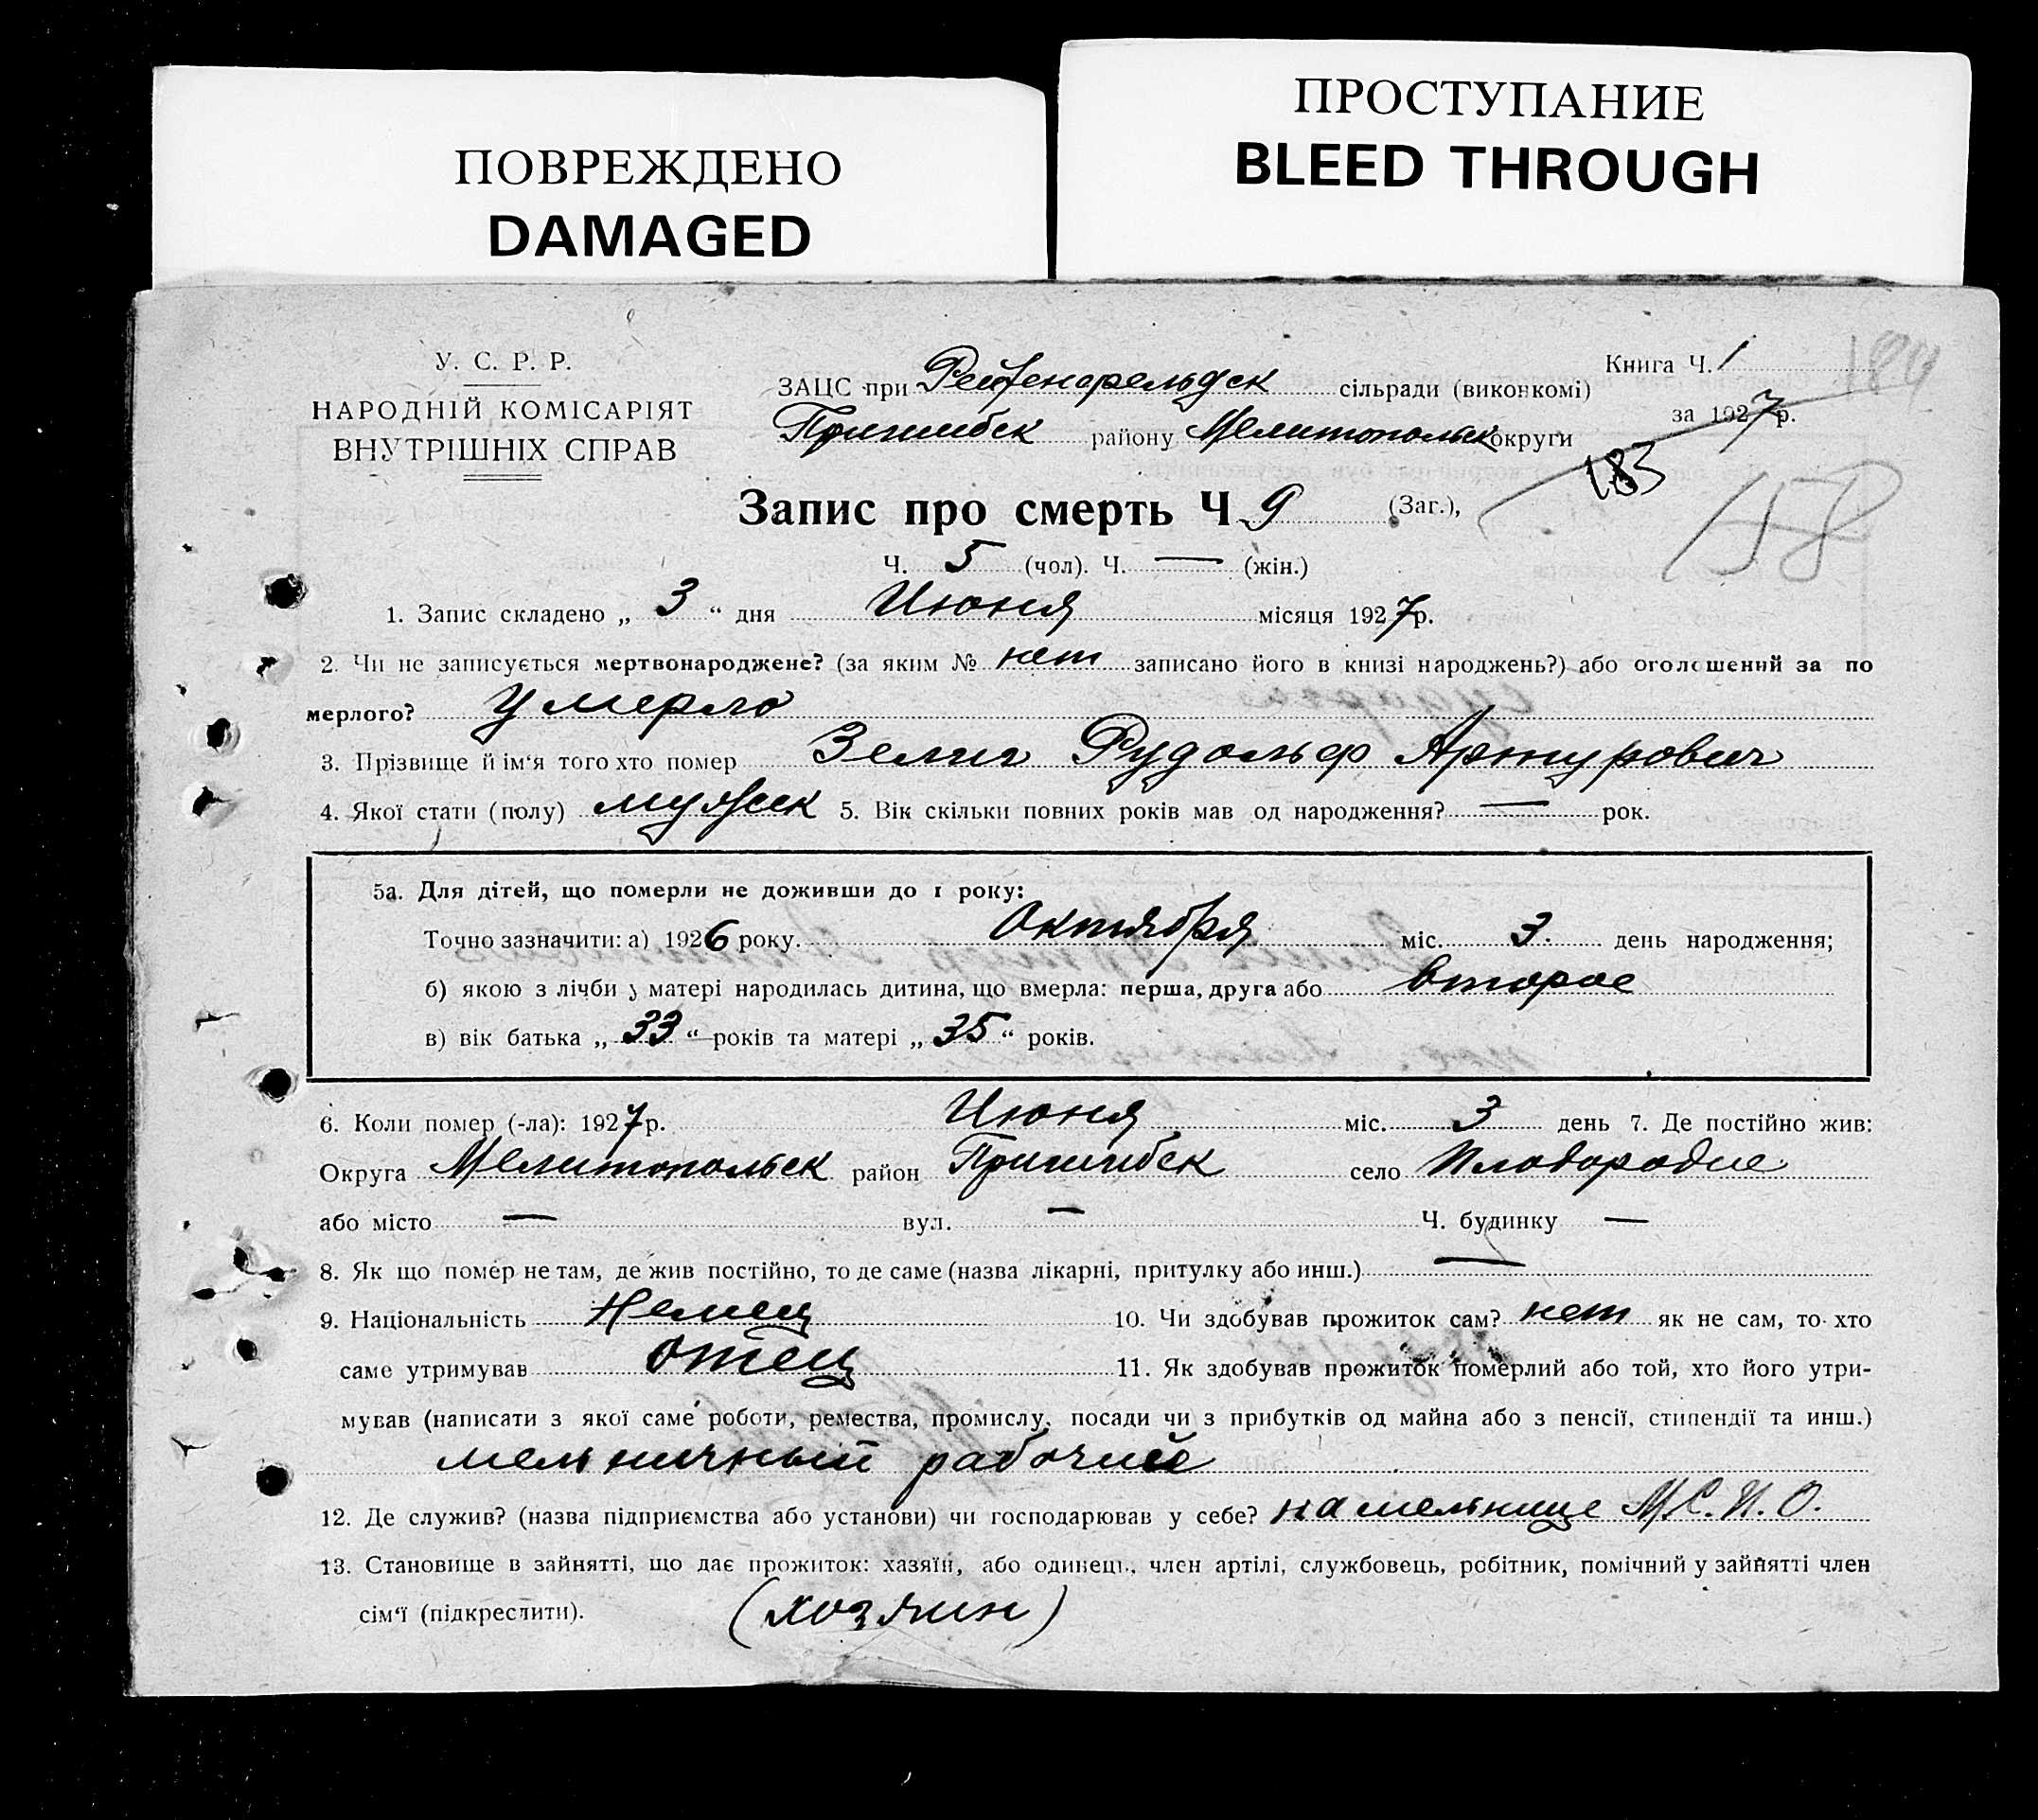 ПОВРЕЖДЕНО
DAMAGED
ПРОСТУПАНИЕ
BLEED THROUGH
У. С. Р. Р.
НАРОДНІЙ КОМІСАРІЯТ
ВНУТРІШНІХ СПРАВ
ЗАЦС при Рейхенфельдск сільради (виконкомі)
Пришибск району Мелитопольск округи
Книга Ч. 1
184
за 1927 р.
183
158
Запис про смерть Ч 9 (Заг.),
Ч. 5 (чол). Ч. — (жін.)
1. Запис складено „ 3 “ дня Июня місяця 1927 р.
2. Чи не записується мертвонароджене? (за яким № нет записано його в книзі народжень?) або оголошений за по
мерлого? Умерло
3. Прізвище й ім‘я того хто помер Зелиг Рудольф Артурович
4. Якої стати (полу) мужск 5. Вік скільки повних років мав од народження? — рок.
5а. Для дітей, що померли не доживши до 1 року:
Точно зазначити: а) 1926 року. Октября міс. 3. день народження;
б) якою з лічби у матері народилась дитина, що вмерла: перша, друга або второе
в) вік батька „ 33 “ років та матері „ 35 “ років.
6. Коли помер (-ла): 1927 р. Июня міс. 3 день 7. Де постійно жив:
Округа Мелитопольск район Пришибск село Плодородие
або місто — вул. — Ч. будинку —
8. Як що помер не там, де жив постійно, то де саме (назва лікарні, притулку або инш.) —
9. Національність Немец 10. Чи здобував прожиток сам? нет як не сам, то хто
саме утримував отец 11. Як здобував прожиток померлий або той, хто його утри-
мував (написати з якої саме роботи, ремества, промислу, посади чи з прибутків од майна або з пенсії, стипендії та инш.)
мельничный рабочий
12. Де служив? (назва підприємства або установи) чи господарював у себе? на мельнице М.С.П.О.
13. Становище в зайнятті, що дає прожиток: хазяїн, або одинець, член артілі, службовець, робітник, помічний у зайнятті член
сім‘ї (підкреслити). (хозяин)